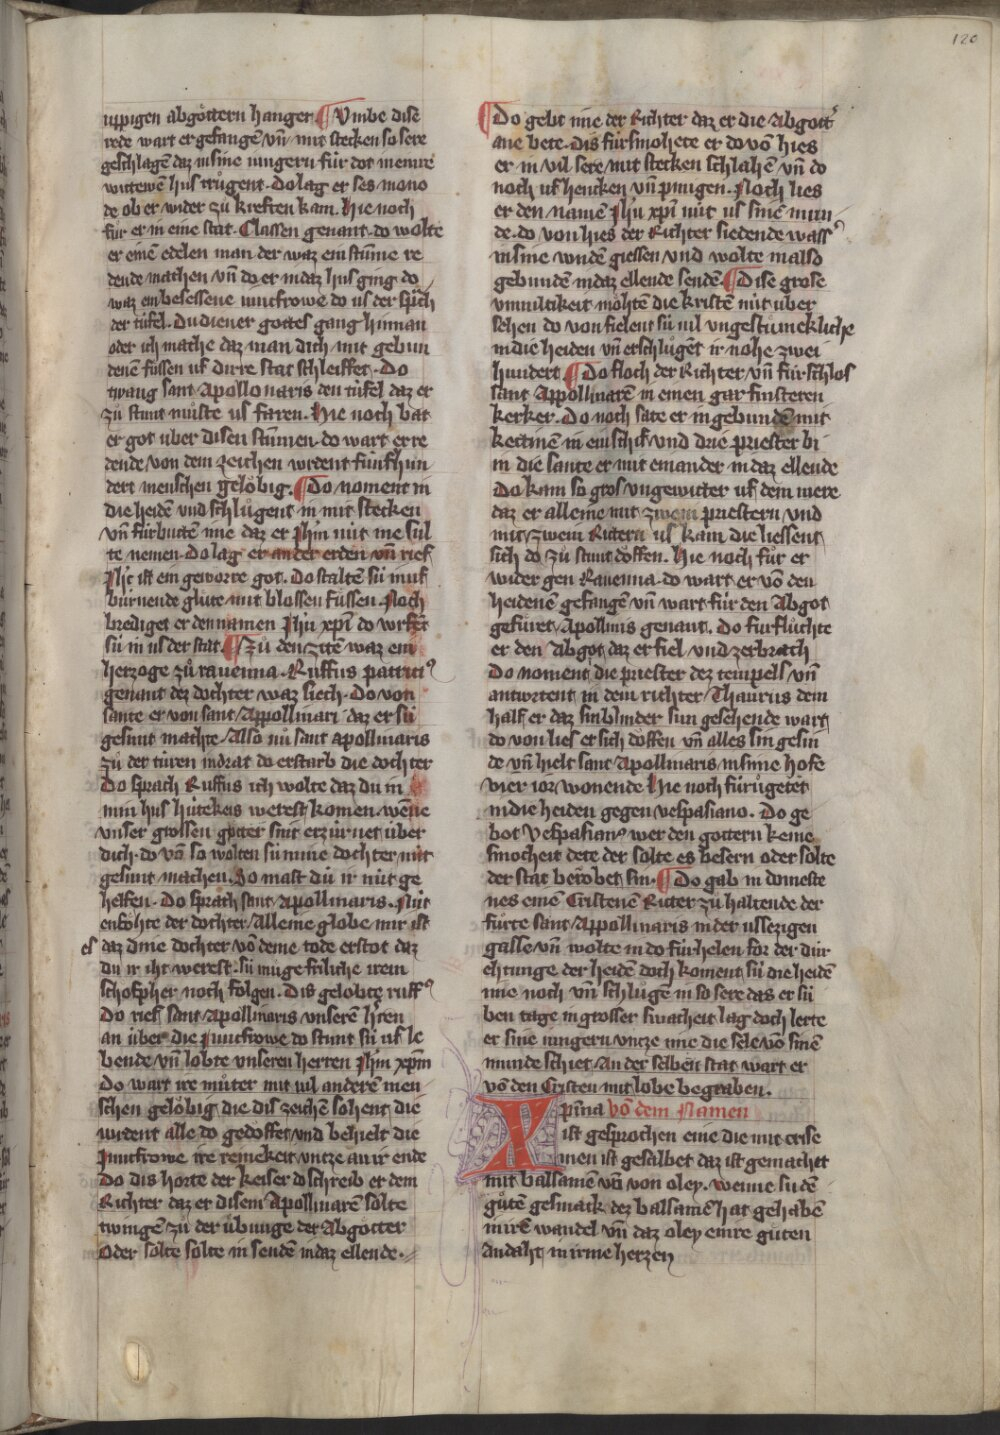 120
uppigen abgöttern hangen ¶ Vmbe dise
rede wart er gefangē vn̄ mit stecken so sere
geschlagē daz in sine iungern für dot in einre
wittewen hus trůgent. Do lag er ses mono
de ob er wider zů kreften kam. Hie noch
für er in eine stat. Classen genant. do wolte
er einē edelen man der waz ein stūme re
dende machen vn̄ do er in daz hus ging do
waz ein besessene iuncfrowe do us der sp̄ch
der tüfel. Du diener gottes gang hinnan
oder ich mache daz man dich mit gebun
denē füssen us dirre stat schleiffet. Do
twang sant Apollonaris den tüfel daz er
zů stunt můste us faren. Hie noch bat
er got über disen stūmen. do wart er re
dende von dem zeichen wrdent fünfhun
dert menschen gelöbig. ¶ Do noment in
die heidē vnd schlůgent in mit stecken
vn̄ fürbuttē nie daz er Jhm nüt me sül
te nemen. Do lag er an der erden vn̄ rief
Jhc ist ein geworre got. Do staltē sü in uf
bürnende glüte mit blossen füssen. Noch
brediget er den namen Jhu xpi do wrfēt
sü in us der stat. ¶ Zů den zitē waz ein
herzoge zů rauenna. Ruffus patriciꝰ
genant dez dochter waz siech. Do von
sante er von sant Appollinari daz er sü
gesunt machte. Also nů sant apollinaris
zů der türen indrat do erstarb die dochter
Do sprach Ruffus ich wolte daz du in
min hus hütekeis werest komen. wēne
vnser grossen götter sint erzürnet über
dich. do vō so wolten sü mine dochter nüt
gesunt machen. So maft dü ir nüt ge
helfen. Do sprach sant Apollinaris. Nüt
enföhte der dochter Alleine globe mir ist
es daz dine dochter vō deme tode erstot daz
du ir iht werest. sü müge friliche irem
schöpher noch folgen. Dis gelobte ruffꝰ
Do rief sant Apollinaris vnserē h̄ren
an über die Juncfrowe do stunt sü uf le
bende vn̄ lobte vnseren herren Jhm xpm
Do wart ire můter mit vil anderē men
schen gelöbig die dis zeichē sohent die
wrdent alle do gedöffet vnd behielt die
Juncfrowe ire reinekeit vntze an ir ende
Do dis horte der keiser do schreib er dem
Richter daz er disem Apollinarē sölte
twingē zů der übunge der Abgötter
Oder sölte solte in sendē in daz ellende.
¶ Do gebt ime der Richter daz er die Abgött
ane bete. dis fürsmohete er do vō hies
er in vil sere mit stecken schlahē vn̄ do
noch uf hencken vn̄ pinigen. Noch lies
er den namē Jhu xpi nüt us sinē mun
de. do von hies der Richter siedende wassꝰ
in sine wndē giessen vnd wolte in also
gebundē in daz ellende sendē. ¶ Dise grose
vnmiltikeit möhtē die kristē nüt über
sehen do von fielent sü vil vngestümekliche
in die heiden vn̄ erschlůgēt ir nohe zwei
hundert. ¶ Do floch der Richter vn̄ fürschlos
sant Appollinarē in einen gar finsteren
kerker. Do noch satte er in gebundē mit
kettinē in ein schif vnd drie priester bi
in die sante er mit einander in daz ellende
Do kam so gros vngewitter uf dem mere
daz er alleine mit zwein priestern vnd
mit zwein Rittern us kam die liessent
sich do zů stunt döffen. Hie noch fůr er
wider gen Rauenna. do wart er vō den
heidenē gefangē vn̄ wart für den Abgot
gefüret Apollinis genant. Do fürflůchte
er den Abgot daz er fiel vnd zerbrach
Do noment die priester dez tempels vn̄
antwrtent in dem richter Thaurus dem
half er daz sin blinder sun gesehende wart
do von lies er sich döffen vn̄ alles sin gesin
de vn̄ hielt sant Apollinaris in sime hofe
vier ior wonende Hie noch fürrůgetēt
in die heiden gegen vespasiano. Do ge
bot Vespasianꝰ wer den göttern keine
smocheit dete der sölte es besern oder sölte
der stat berobet sin. ¶ Do gab in domeste
nes einē Cristenē Ritter zů haltende der
fürte sant Appollinaris in der ussezigen
gasse vn̄ wolte in do fürhelen for der dür
echtunge der heidē doch koment sü die heidē
ime noch vn̄ schlůgē in so sere das er sü
ben tage in grosser swacheit lag doch lerte
er sine iungern vntze ime die sele vō sinē
munde schiet An der selbē stat wart er
vō den Cristen mit lobe begraben.
Xp̄ina vō dem Namen
ist gesprochen eine die mit crise
men ist gesalbet daz ist gemachet
mit balsamē vn̄ von oley. wenne sü dē
gůtē gesmack dez balsamē hat gehabē
in irē wandel vn̄ daz oley einre gůten
andaht in irme herzen